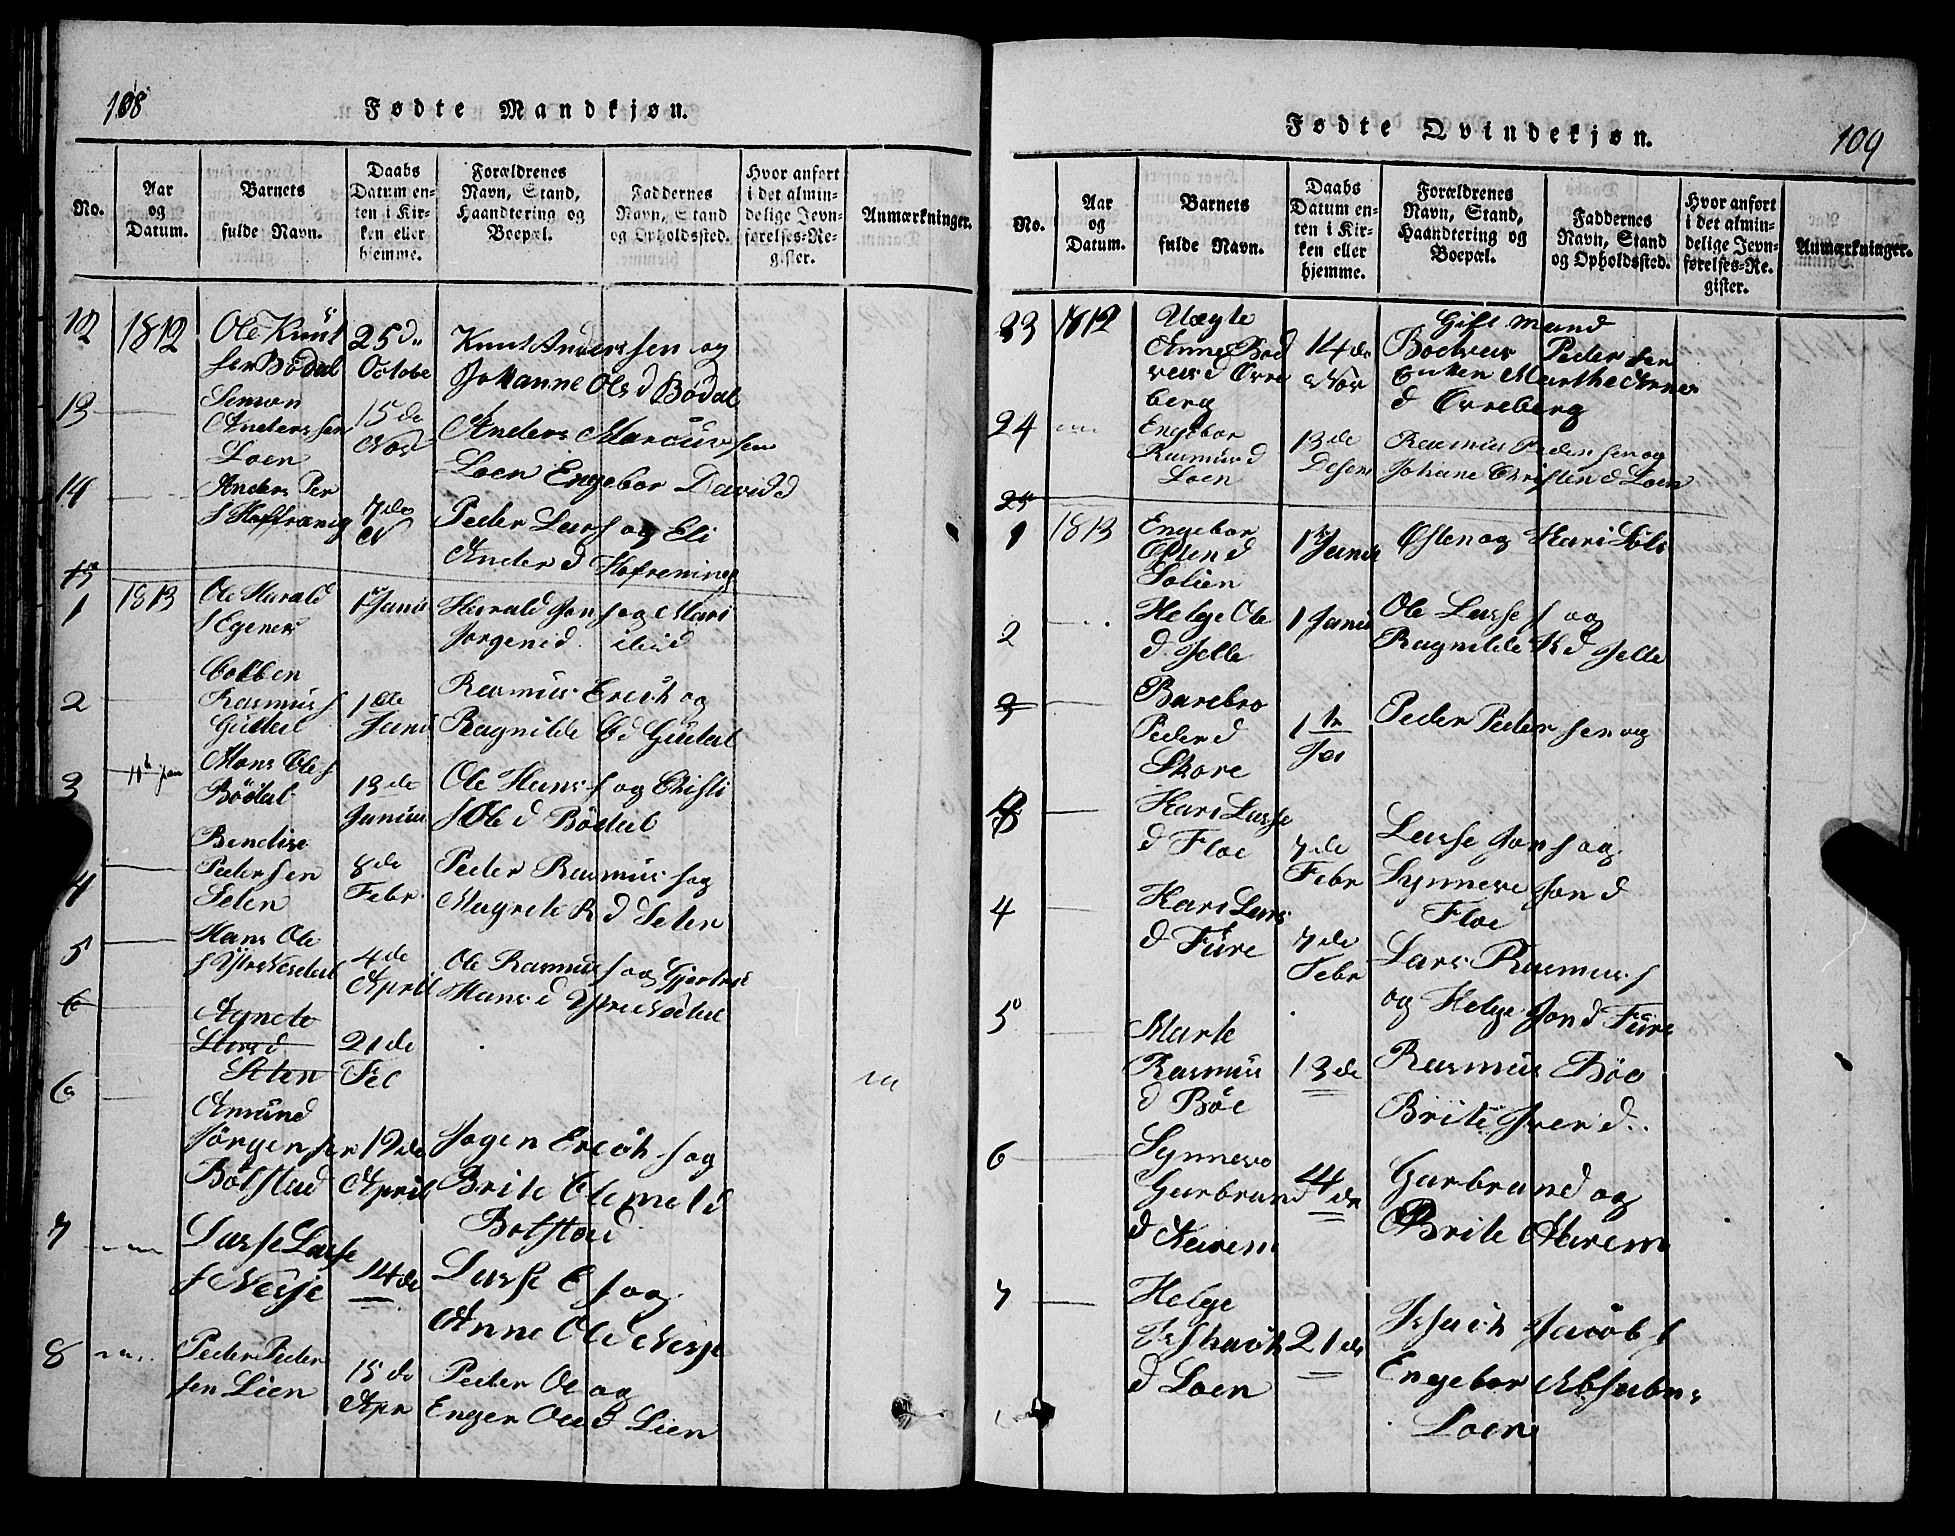 108
Fødte Mandkjøn.
No.
Aar
og
Datum.
Barnets
fulde Navn.
Daabs
Datum en-
ten i Kir-
ken eller
hjemme.
Forældrenes
Navn, Stand,
Haandtering og
Boepæl.
Faddernes
Navn, Stand
og Opholdssted.
Hvor anført
i det almin-
delige Jevn-
førelses-Re-
gister.
Anmærkninger.
12 1812 Ole Knut 25 d
sen Bödal Octobe
Knut Anderssen og
Johanne Ols d Bödal
13 Simon 15 de
Anderssen Nov
Loen
Anders Marcussen
Loen Engebor David d
14 Anders Per 7 de
s Hoffrænig
Peder Lars s og Eli
Ander d Hofrening
15
1 1813 Ole Harald 1 Janu
s Egenes
Harald Jon s og Mari
Jorgen d
2 Rasmus s 1 de
Guttal Janu
Rasmus Erich og
Ragnilde d Guttal
3 11 Jan Mons Ole s 13 de
Bödal Januu
Ole Hans s og Christi
Ole d Bödal
4 Bendise
Pedersen 8 de
Seten Febr
Peder Rasmus s og
Magrete R d Seten
5 Hans Ole 4 de
s Ytre April
Ole Rasmus s og Gjertru
Hans d Ytre
6 Agnete
Lars d 21 de
Seten Feb
6 Amund
Jörgensen 12 de
Bötstad April
Jogen Erich s og
Brite Clemet d
Botstad
7 Lasse Lasse
s Nesje 14 de
Lasse E s og
Anne Ole d Nesje
8 Peder Peder 15 de
sen Lien Apr
Peder Ol og
Enger Ole d Lien
109
Fødte Qvindekjøn.
No.
Aar
og
Datum.
Barnets
fulde Navn.
Daabs
Datum en-
ten i Kir-
ken eller
hjemme.
Forældrenes
Navn, Stand,
Haandtering og
Boepæl.
Faddernes
Navn, Stand
og Opholdssted.
Hvor anført
i det almin-
delige Jevn-
førelses-Re-
gister.
Anmærkninger.
23 1812 Uægte
Anne Bod 14 de
veus d Övre Nov
berg
Gift Mand
Bodveus Pedersen
Enken Marthe
d Övreberg
24 Engebor 13 de
Rasmus d Desem
Loen
Rasmus Pedersen og
Johane Christen d Loen
25
1 1813 Engebor
Östen d 1 Janu
Solien
Östen og Kari
2 Helge Ole 1 Janu
d Jelle
Ole Lasse s og
Ragnilde K d Jelle
3 Barebro
Peder d 1
Skore
Peder Pedersen og
3 Kari Lasse
d Floe 7 de
Febr
Lasse Jon s og
Synneve Jon d
Floe
4 Kari Lars
d Füre 7 de
Febr
Lars Rasmus s
og Helge Jon d Füre
5 Marte
Rasmus 13 de
d Böe
Rasmus Böe
Brite Iver d
6 Synneve
Garbrand 14 de
d Aarem
Garbrand og
Brite Aarem
7 Helge
21 de
d Loen
Isach Jacob s
Engebor
Loen